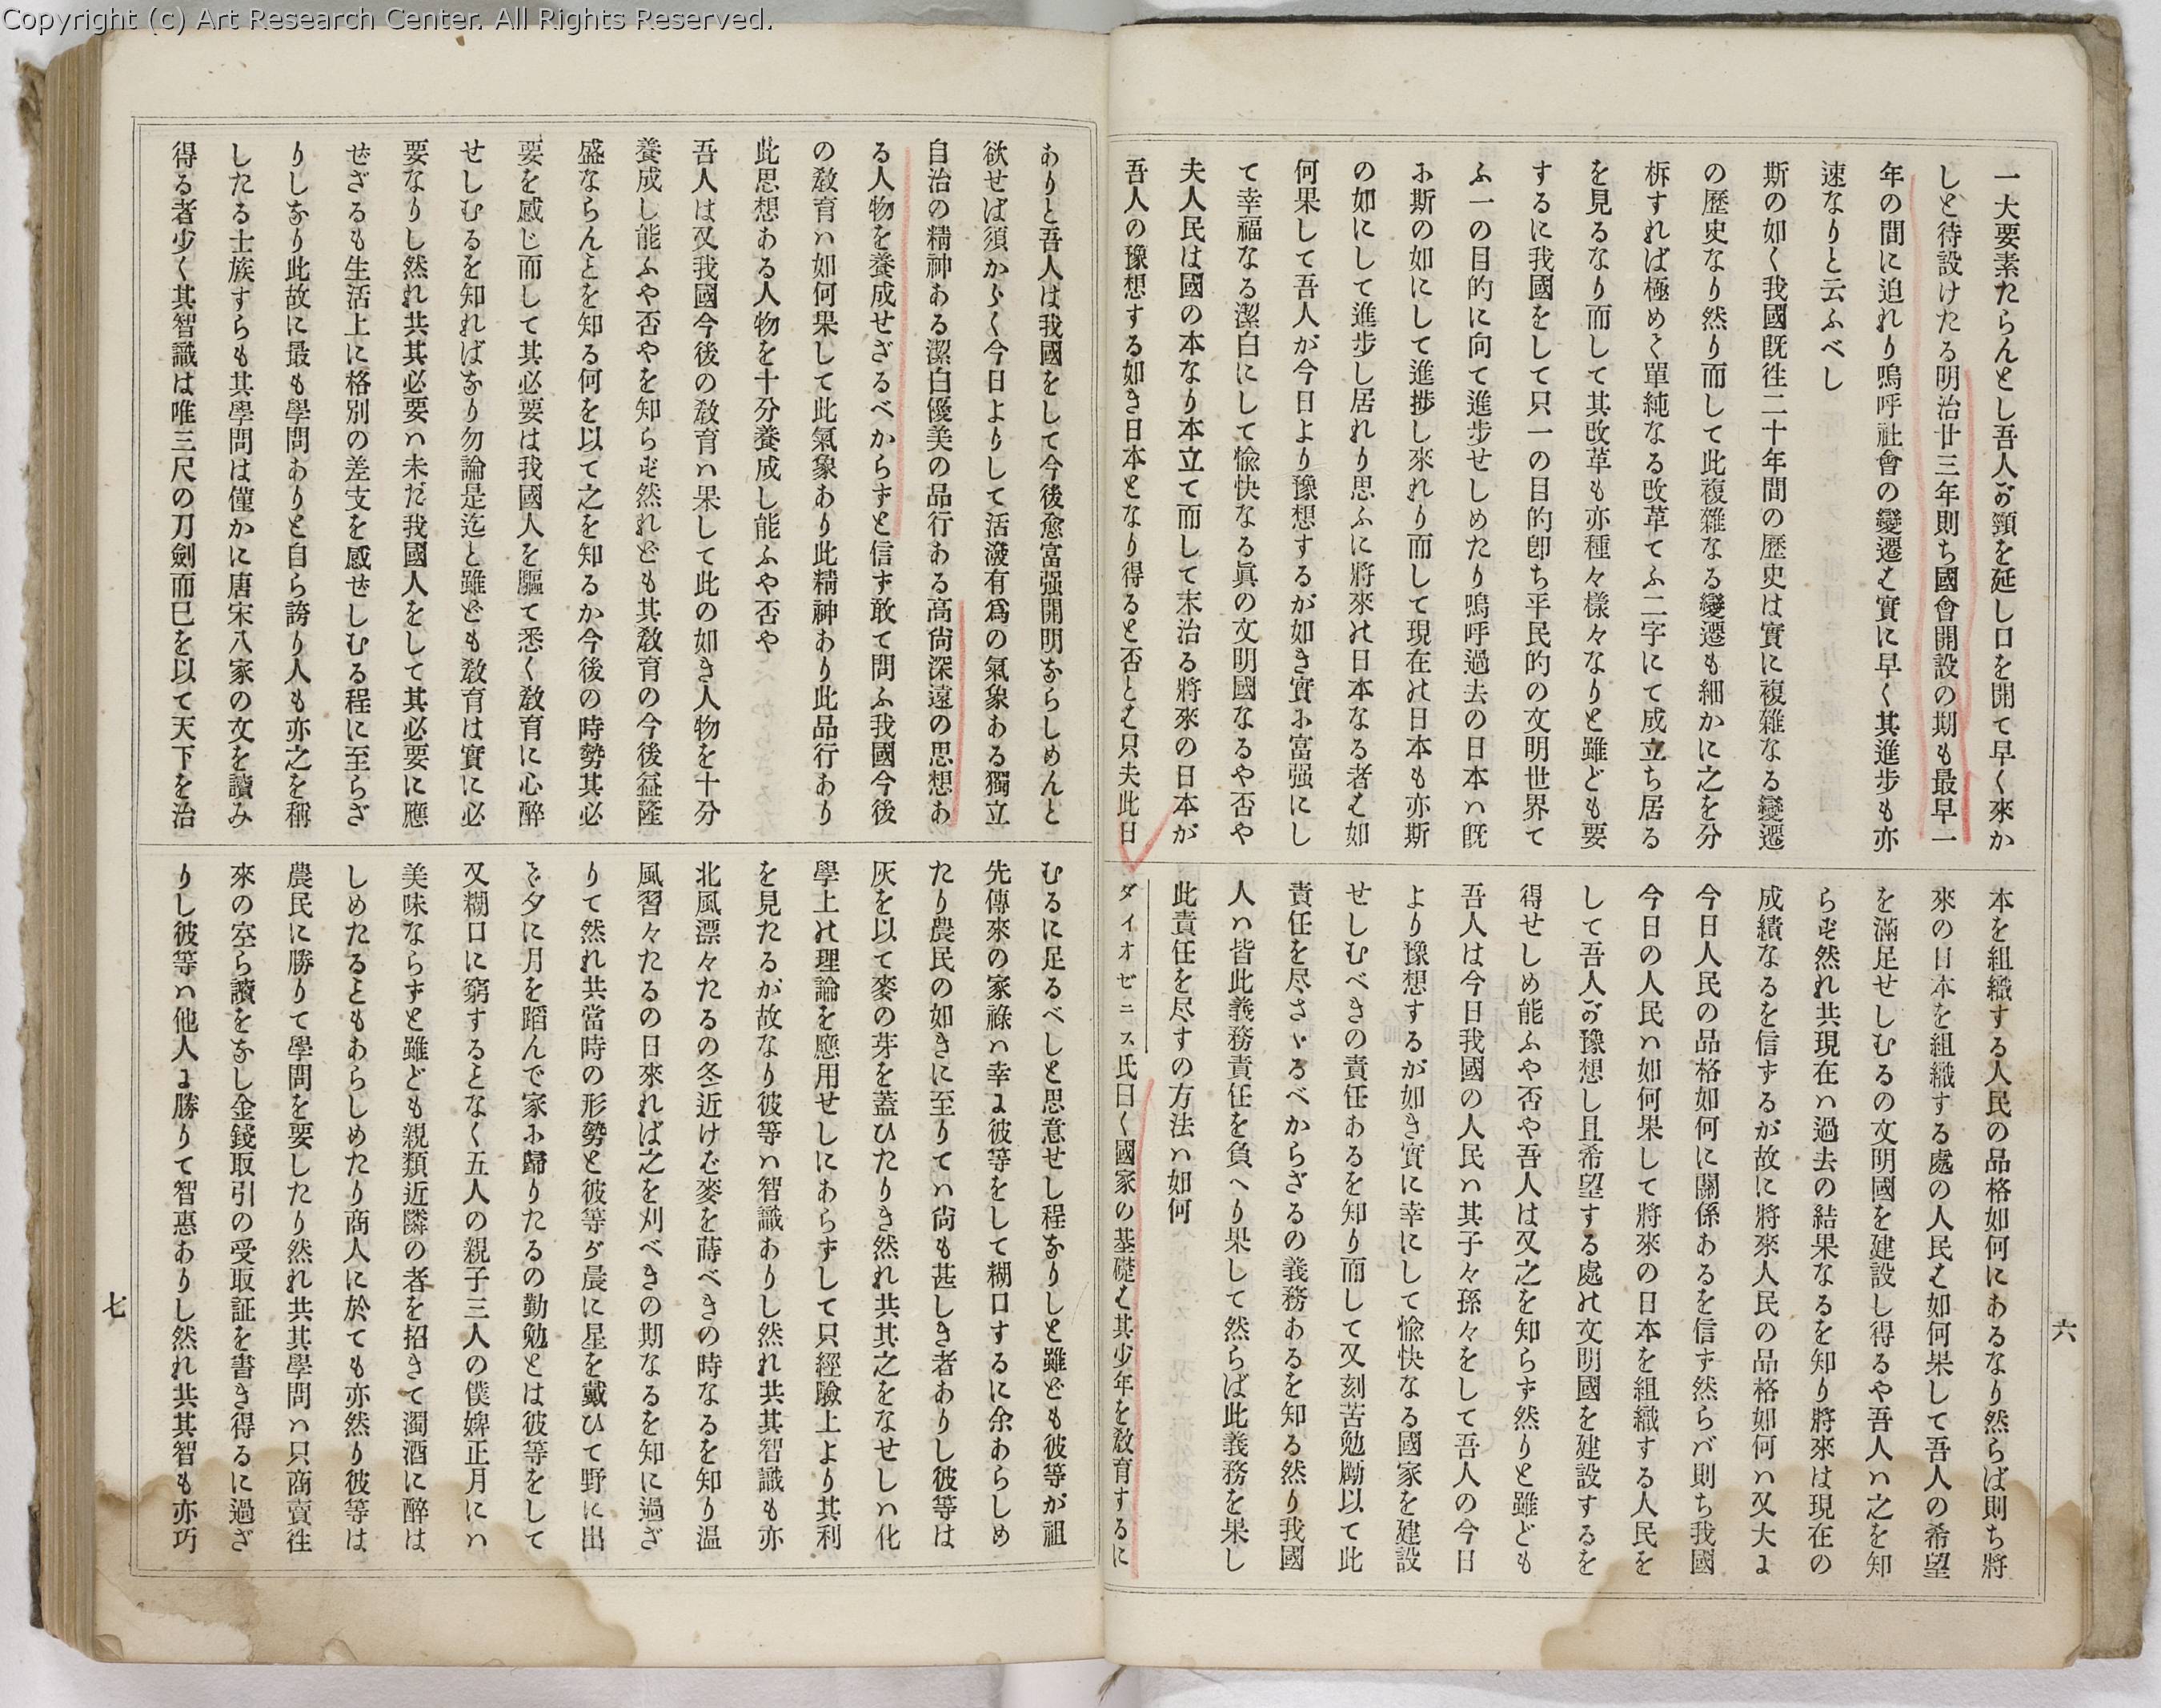 Copyright (c) Art Research Center. All Rights Reserved.
一大要素たらんとし吾人が頸を延し口を開て早く來か
しと待設けたる明治廿三年則ち國會開設の期も最早一
年の間に迫れり嗚呼社會の變遷は實に早く其進步も亦
速なりと云ふべし
斯の如く我國既徃二十年間の歷史は實に複雜なる變遷
の歷史なり然り而して此複雜なる變遷も細かに之を分
柝すれば極めて單純なる改革てふ二字にて成立ち居る
を見るなり而して其改革も亦種々樣々なりと雖ども要
するに我國をして只一の目的卽ち平民的の文明世界て
ふ一の目的に向て進步せしめたり嗚呼過去の日本ハ旣
に斯の如にして進捗し來れり而して現在の日本も亦斯
の如にして進步し居れり思ふに將來の日本なる者は如
何果して吾人が今日より豫想するが如き實に富强にし
て幸福なる潔白にして愉快なる眞の文明國なるや否や
夫人民は國の本なり本立て而して末治る將來の日本が
吾人の豫想する如き日本となり得ると否とは只夫此日
本を組織する人民の品格如何にあるなり然らば則ち將
來の日本を組織する處の人民は如何果して吾人の希望
を滿足せしむるの文明國を建設し得るや吾人ハ之を知
らず然れ共現在ハ過去の結果なるを知り將來は現在の
成績なるを信ずるが故に將來人民の品格如何ハ又大に
今日人民の品格如何に關係あるを信ず然らバ則ち我國
今日の人民ハ如何果して將來の日本を組織する人民を
して吾人が豫想し且希望する處の文明國を建設するを
得せしめ能ふや否や吾人は又之を知らず然りと雖ども
吾人は今日我國の人民ハ其子々孫々をして吾人の今日
より豫想するが如き實に幸にして愉快なる國家を建設
せしむべきの責任あるを知り而して又刻苦勉勵以て此
責任を尽さゞるべからざるの義務あるを知る然り我國
人ハ皆此義務責任を負へり果して然らば此義務を果し
此責任を尽すの方法ハ如何
ダイオゼニス氏曰く國家の基礎は其少年を敎育するに
六
ありと吾人は我國をして今後愈富强開明ならしめんと
欲せば須からく今日よりして活潑有爲の氣象ある獨立
自治の精神ある潔白優美の品行ある高尙深遠の思想あ
る人物を養成せざるべからずと信ず敢て問ふ我國今後
の敎育ハ如何果して此氣象あり此精神あり此品行あり
此思想ある人物を十分養成し能ふや否や
吾人は又我國今後の敎育ハ果して此の如き人物を十分
養成し能ふや否やを知らず然れども其敎育の今後益隆
盛ならんとを知る何を以て之を知るか今後の時勢其必
要を感じ而して其必要は我國人を驅て悉く敎育に心醉
せしむるを知ればなり勿論是迄と雖ども敎育は實に必
要なりし然れ共其必要ハ未だ我國人をして其必要に應
ぜざるも生活上に格別の差支を感ぜしむる程に至らざ
りしなり此故に最も學問ありと自ら誇り人も亦之を稱
したる士族すらも其學問は僅かに唐宋八家の文を讀み
得る者少く其智識は唯三尺の刀劍而已を以て天下を治
むるに足るべしと思意せし程なりしと雖ども彼等が祖
先傳來の家祿ハ幸に彼等をして糊口するに余あらしめ
たり農民の如きに至りてハ尙も甚しき者ありし彼等は
灰を以て麥の芽を蓋ひたりき然れ共其之をなせしハ化
學上の理論を應用せしにあらずして只經驗上より其利
を見たるが故なり彼等ハ智識ありし然れ共其智識も亦
北風漂々たるの冬近けば麥を蒔べきの時なるを知り温
風習々たるの日來れば之を刈べきの期なるを知に過ざ
りて然れ共當時の形勢と彼等が晨に星を戴ひて野に出
で夕に月を蹈んで家に歸りたるの勤勉とは彼等をして
又糊口に窮するとなく五人の親子三人の僕婢正月にハ
美味ならずと雖ども親類近隣の者を招きて濁酒に醉は
しめたるともあらしめたり商人に於ても亦然り彼等は
農民に勝りて學問を要したり然れ共其學問ハ只商賣徃
來の空ら讀をなし金錢取引の受取証を書き得るに過ざ
りし彼等ハ他人に勝りて智惠ありし然れ共其智も亦巧
七